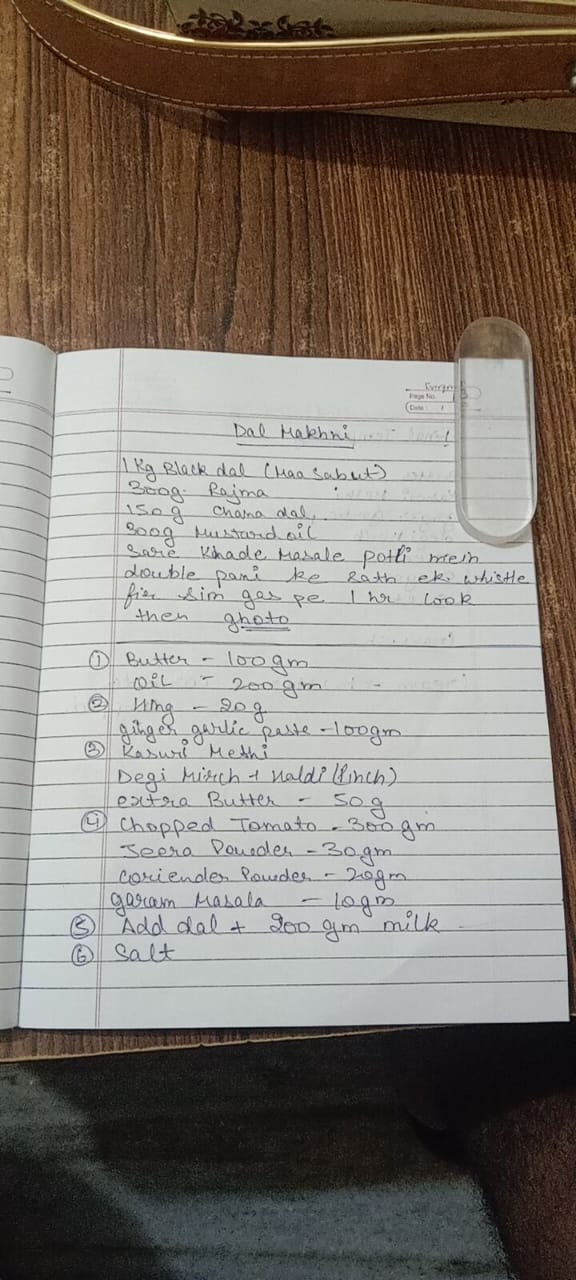 Page No.
Date: / /
Dal Makhni
1 Kg Black dal (Maa Sabut)
300g. Rajma
150g Chana dal,
300g Mustard oil
Sare Khade Masale potli mein
double pani ke Sath ek whistle
fir Sim gas pe 1 hr Cook
then ghoto
① Butter - 100gm
Oil - 200gm
② Hing - 20g
ginger garlic paste - 100gm
③ Kasuri Methi
Degi Mirch + Haldi (Pinch)
extra Butter - 50g
④ Chopped Tomato - 300gm
Jeera Powder - 30gm
Coriender Powder - 20gm
garam Masala - 10gm
⑤ Add dal + 200 gm milk
⑥ Salt